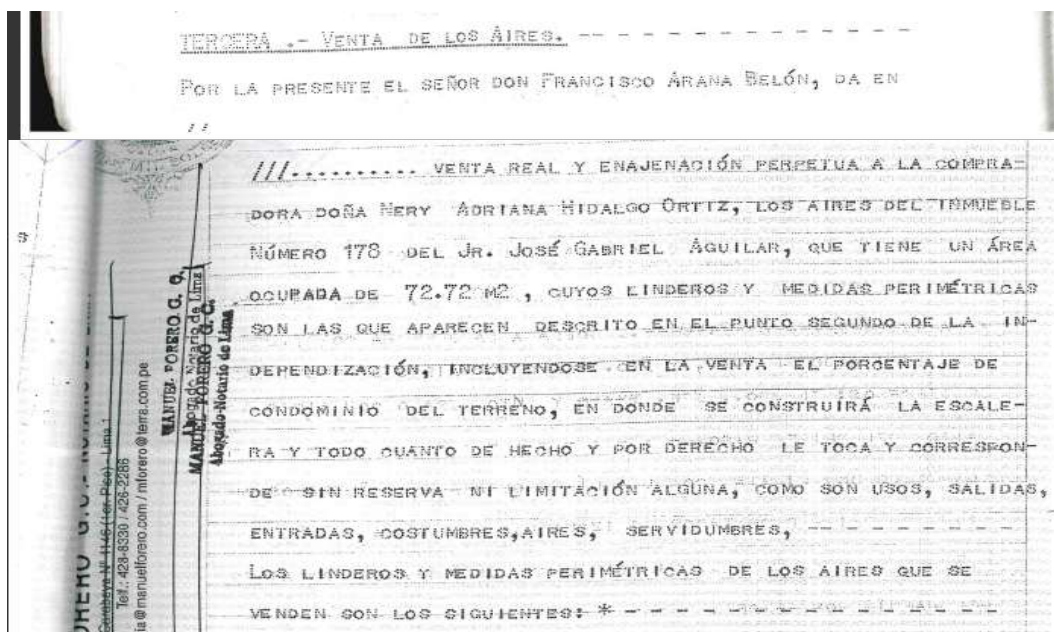 TERCERA .- VENTA DE LOS AIRES. -- - - - - - - - - - - -
POR LA PRESENTE EL SEÑOR DON FRANCISCO ARANA BELÓN, DA EN
//
///.......... VENTA REAL Y ENAJENACIÓN PERPETUA A LA COMPRA-
DORA DOÑA NERY ADRIANA HIDALGO ORTIZ, LOS AIRES DEL INMUEBLE
NÚMERO 178 DEL JR. JOSÉ GABRIEL AGUILAR, QUE TIENE UN ÁREA
OCUPADA DE 72.72 M2 , CUYOS LINDEROS Y MEDIDAS PERIMÉTRICAS
SON LAS QUE APARECEN DESCRITO EN EL PUNTO SEGUNDO DE LA IN-
DEPENDIZACIÓN, INCLUYENDOSE EN LA VENTA EL PORCENTAJE DE
CONDOMINIO DEL TERRENO, EN DONDE SE CONSTRUIRÁ LA ESCALE-
RA Y TODO CUANTO DE HECHO Y POR DERECHO LE TOCA Y CORRESPON-
DE SIN RESERVA NI LIMITACIÓN ALGUNA, COMO SON USOS, SALIDAS,
ENTRADAS, COSTUMBRES,AIRES, SERVIDUMBRES, -- - - - - - -
LOS LINDEROS Y MEDIDAS PERIMÉTRICAS DE LOS AIRES QUE SE
VENDEN SON LOS SIGUIENTES: * - - - - - - - - - - - - -
MANUEL FORERO G. C.
Abogado Notario de Lima
MANUEL FORERO G. C.
Abogado-Notario de Lima
Carabaya Nº 1146 (1er. Piso) - Lima 1
Telf.: 428-8330 / 426-2286
@manuelforero.com / mforero@terra.com.pe